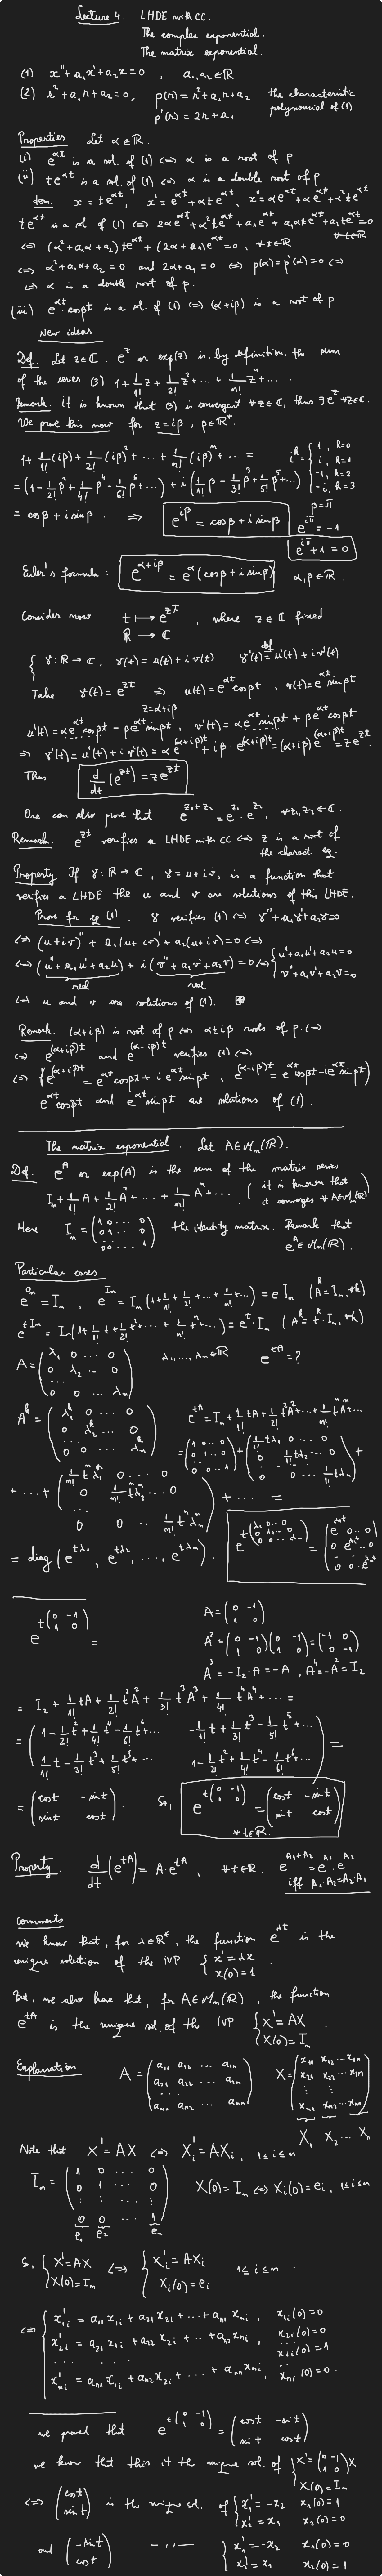 Lecture 4. LHDE with CC.
The complex exponential.
The matrix exponential.
(1) x'' + a₁x' + a₂x = 0, a₁, a₂ ∈ ℝ
(2) r² + a₁r + a₂ = 0, p(r) = r² + a₁r + a₂ the characteristic
polynomial of (1)
p'(r) = 2r + a₁
Properties Let α ∈ ℝ.
(i) e^{αt} is a sol. of (1) ⟺ α is a root of p
(ii) te^{αt} is a sol. of (1) ⟺ α is a double root of p
dem. x = te^{αt}, x' = e^{αt} + αte^{αt}, x'' = αe^{αt} + αe^{αt} + α²te^{αt}
te^{αt} is a sol of (1) ⟺ 2αe^{αt} + α²te^{αt} + a₁e^{αt} + a₁αte^{αt} + a₂te^{αt} = 0 ∀t∈ℝ
⟺ (α² + a₁α + a₂)te^{αt} + (2α + a₁)e^{αt} = 0, ∀t∈ℝ
⟺ α² + a₁α + a₂ = 0 and 2α + a₁ = 0 ⟺ p(α) = p'(α) = 0 ⟺
⟺ α is a double root of p.
(iii) e^{αt} cos βt is a sol. of (1) ⟺ (α + iβ) is a root of p
New ideas
Def. Let z ∈ ℂ. e^z or exp(z) is, by definition, the sum
of the series (3) 1 + 1/1! z + 1/2! z² + ... + 1/n! zⁿ + ... .
Remark. it is known that (3) is convergent ∀z∈ℂ, thus ∃e^z ∀z∈ℂ.
We prove this now for z = iβ, β∈ℝ*.
1 + 1/1! (iβ) + 1/2! (iβ)² + ... + 1/n! (iβ)ⁿ + ... = i^k = { 1, R=0
i, R=1
-1, R=2
-i, R=3
= (1 - 1/2! β² + 1/4! β⁴ - 1/6! β⁶ + ...) + i(1/1! β - 1/3! β³ + 1/5! β⁵ ...)
= cos β + i sin β. ⟹ e^{iβ} = cos β + i sin β β = π
e^{iπ} = -1
e^{iπ} + 1 = 0
Euler's formula: e^{α+iβ} = e^α (cos β + i sin β) α, β ∈ ℝ.
Consider now t ⟼ e^{zt}, where z ∈ ℂ fixed
ℝ → ℂ
{ γ: ℝ → ℂ, γ(t) = u(t) + i v(t) γ'(t) def= u'(t) + i v'(t)
Take γ(t) = e^{zt} ⟹ u(t) = e^{αt} cos βt, v(t) = e^{αt} sin βt
z = α + iβ
u'(t) = αe^{αt} cos βt - βe^{αt} sin βt, v'(t) = αe^{αt} sin βt + βe^{αt} cos βt
⟹ γ'(t) = u'(t) + i v'(t) = αe^{(α+iβ)t} + iβ · e^{(α+iβ)t} = (α+iβ) e^{(α+iβ)t} = ze^{zt}.
Thus d/dt (e^{zt}) = ze^{zt}
One can also prove that e^{z₁+z₂} = e^{z₁} · e^{z₂}, ∀z₁, z₂ ∈ ℂ.
Remark. e^{zt} verifies a LHDE with CC ⟺ z is a root of
the charact eq.
Property If γ: ℝ → ℂ, γ = u + iv, is a function that
verifies a LHDE the u and v are solutions of this LHDE.
Prove for eq (1). γ verifies (1) ⟺ γ'' + a₁γ' + a₂γ = 0
⟺ (u + iv)'' + a₁(u + iv)' + a₂(u + iv) = 0 ⟺
⟺ (u'' + a₁u' + a₂u) + i(v'' + a₁v' + a₂v) = 0 ⟺ { u'' + a₁u' + a₂u = 0
v'' + a₁v' + a₂v = 0
real real
⟺ u and v are solutions of (1).
Remark. (α + iβ) is root of p ⟺ α ± iβ roots of p. ⟺
⟺ e^{(α+iβ)t} and e^{(α-iβ)t} verifies (1) ⟺
⟺ { e^{(α+iβ)t} = e^{αt} cos βt + i e^{αt} sin βt, e^{(α-iβ)t} = e^{αt} cos βt - i e^{αt} sin βt }
e^{αt} cos βt and e^{αt} sin βt are solutions of (1).
The matrix exponential. Let A ∈ Mₙ(ℝ).
Def. e^A or exp(A) is the sum of the matrix series
Iₙ + 1/1! A + 1/2! A² + ... + 1/n! Aⁿ + ... . (it is known that
it converges ∀A∈Mₙ(ℝ))
Here Iₙ = (1 0 ... 0
0 1 ... 0
0 0 ... 1) the identity matrix. Remark that
e^A ∈ Mₙ(ℝ).
Particular cases
e^{0ₙ} = Iₙ, e^{Iₙ} = Iₙ(1 + 1/1! + 1/2! + ... + 1/n! + ...) = e Iₙ (A^k = Iₙ, ∀k)
e^{tIₙ} = Iₙ(1 + 1/1! t + 1/2! t² + ... + 1/n! tⁿ + ...) = e^t · Iₙ (A^k = t^k · Iₙ, ∀k)
A = (λ₁ 0 ... 0
0 λ₂ ... 0
...
0 0 ... λₙ) λ₁, ..., λₙ ∈ ℝ e^{tA} = ?
A^k = (λ₁^k 0 ... 0
0 λ₂^k ... 0
...
0 0 ... λₙ^k) e^{tA} = Iₙ + 1/1! tA + 1/2! t²A² + ... + 1/n! tⁿAⁿ + ...
= (1 0 ... 0
0 1 ... 0
0 0 ... 1) + (1/1! tλ₁ 0 ... 0
0 1/1! tλ₂ ... 0
0 ... 1/1! tλₙ) +
+ ... + (1/m! t^m λ₁^m 0 ... 0
0 1/m! t^m λ₂^m ... 0
0 0 ... 1/m! t^m λₙ^m) + ... =
= diag(e^{tλ₁}, e^{tλ₂}, ..., e^{tλₙ}). e^{t(λ₁ 0 ... 0; 0 λ₂ ... 0; 0 0 ... λₙ)} = (e^{λ₁t} 0 ... 0
0 e^{λ₂t} ... 0
0 0 ... e^{λₙt})
e^{t(0 -1; 1 0)} = A = (0 -1; 1 0)
A² = (0 -1; 1 0)(0 -1; 1 0) = (-1 0; 0 -1)
A³ = -I₂ · A = -A, A⁴ = -A² = I₂
= I₂ + 1/1! tA + 1/2! t²A² + 1/3! t³A³ + 1/4! t⁴A⁴ + ... =
= (1 - 1/2! t² + 1/4! t⁴ - 1/6! t⁶ ... -1/1! t + 1/3! t³ - 1/5! t⁵ + ...
1/1! t - 1/3! t³ + 1/5! t⁵ ... 1 - 1/2! t² + 1/4! t⁴ - 1/6! t⁶ ...) =
= (cos t -sin t
sin t cos t). So, e^{t(0 -1; 1 0)} = (cos t -sin t
sin t cos t)
∀t∈ℝ.
Property. d/dt (e^{tA}) = A · e^{tA}, ∀t∈ℝ. e^{A₁+A₂} = e^{A₁} · e^{A₂}
iff A₁·A₂ = A₂·A₁
Comments
We know that, for λ∈ℝ*, the function e^{λt} is the
unique solution of the IVP { x' = λx
x(0) = 1.
But, we also have that, for A∈Mₙ(ℝ), the function
e^{tA} is the unique sol. of the IVP { X' = AX
X(0) = Iₙ.
Explanation A = (a₁₁ a₁₂ ... a₁ₙ
a₂₁ a₂₂ ... a₂ₙ
...
aₙ₁ aₙ₂ ... aₙₙ) X = (x₁₁ x₁₂ ... x₁ₙ
x₂₁ x₂₂ ... x₂ₙ
⋮ ⋮
xₙ₁ xₙ₂ ... xₙₙ)
X₁ X₂ ... Xₙ
Note that X' = AX ⟺ Xᵢ' = AXᵢ, 1≤i≤n
Iₙ = (1 0 ... 0
0 1 ... 0
⋮ ⋮ ⋮ ⋮
0 0 ... 1) X(0) = Iₙ ⟺ Xᵢ(0) = eᵢ, 1≤i≤n
e₁ e₂ eₙ
So, { X' = AX
X(0) = Iₙ ⟺ { Xᵢ' = AXᵢ
Xᵢ(0) = eᵢ 1≤i≤n.
⟺ { x₁ᵢ' = a₁₁x₁ᵢ + a₂₁x₂ᵢ + ... + a₁ₙxₙᵢ, x₁ᵢ(0) = 0
x₂ᵢ' = a₂₁x₁ᵢ + a₂₂x₂ᵢ + ... + a₂ₙxₙᵢ, x₂ᵢ(0) = 0
... xᵢᵢ(0) = 1
xₙᵢ' = aₙ₁x₁ᵢ + aₙ₂x₂ᵢ + ... + aₙₙxₙᵢ, xₙᵢ(0) = 0.
We proved that e^{t(0 -1; 1 0)} = (cos t -sin t
sin t cos t)
We know that this it the unique sol. of { X' = (0 -1; 1 0)X
X(0) = Iₙ
⟺ (cos t
sin t) is the unique sol. of { x₁' = -x₂ x₁(0) = 1
x₂' = x₁ x₂(0) = 0
and (-sin t
cos t) —,,— { x₁' = -x₂ x₁(0) = 0
x₂' = x₁ x₂(0) = 1